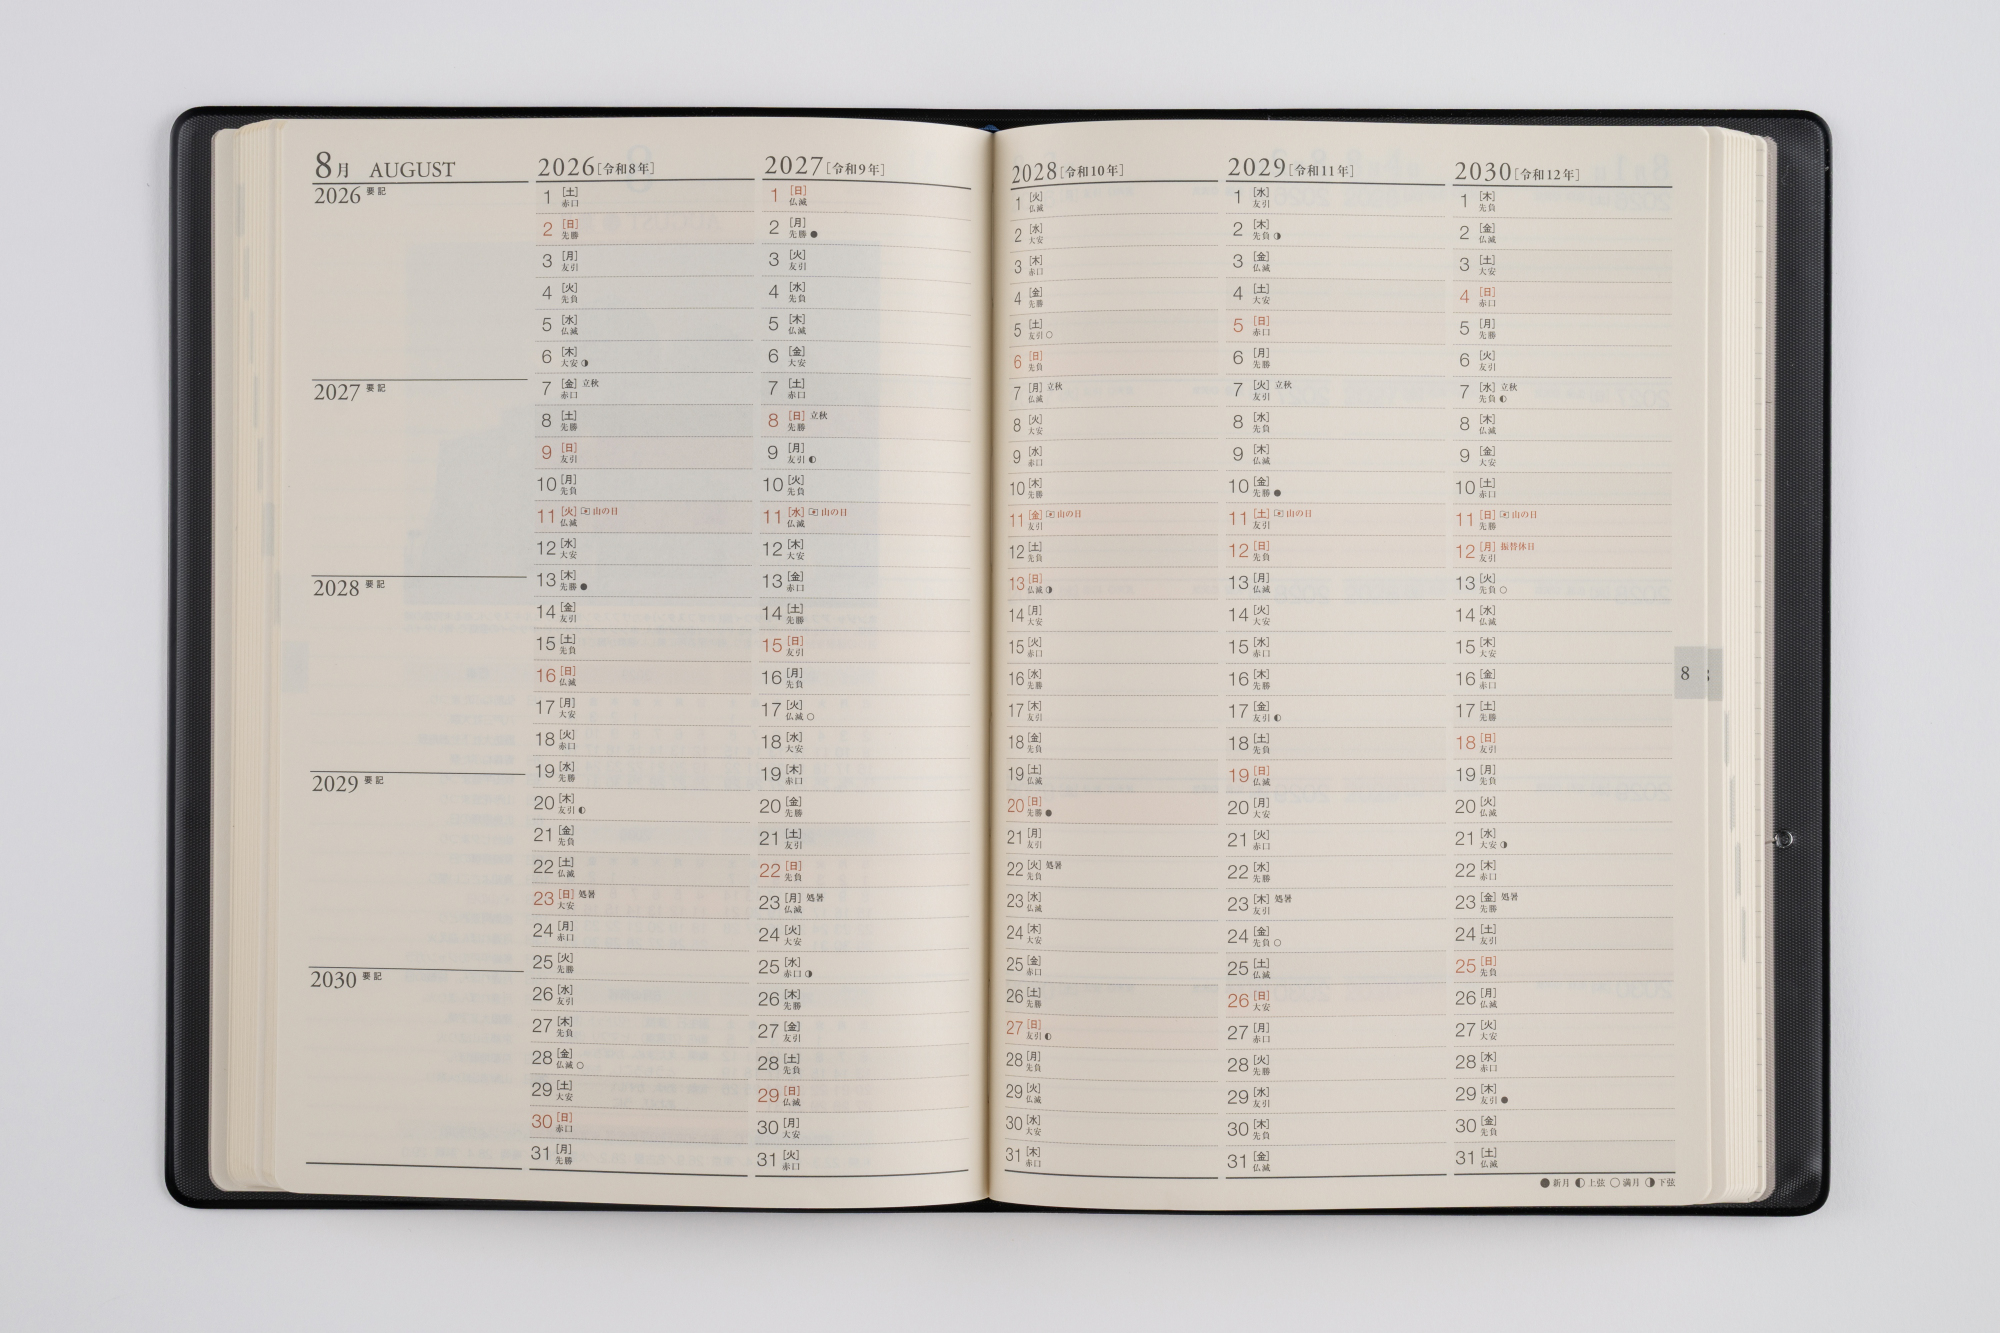 8月 AUGUST
2026 要記
2027 要記
2028 要記
2029 要記
2030 要記
2026[令和8年]
1 [土]
赤口
2 [日]
先勝
3 [月]
友引
4 [火]
先負
5 [水]
仏滅
6 [木]
大安 ◑
7 [金] 立秋
赤口
8 [土]
先勝
9 [日]
友引
10 [月]
先負
11 [火] 山の日
仏滅
12 [水]
大安
13 [木]
先勝 ●
14 [金]
友引
15 [土]
先負
16 [日]
仏滅
17 [月]
大安
18 [火]
赤口
19 [水]
先勝
20 [木]
友引 ◐
21 [金]
先負
22 [土]
仏滅
23 [日] 処暑
大安
24 [月]
赤口
25 [火]
先勝
26 [水]
友引
27 [木]
先負
28 [金]
仏滅 ○
29 [土]
大安
30 [日]
赤口
31 [月]
先勝
2027[令和9年]
1 [日]
仏滅
2 [月]
先勝 ●
3 [火]
友引
4 [水]
先負
5 [木]
仏滅
6 [金]
大安
7 [土]
赤口
8 [日] 立秋
先勝
9 [月]
友引 ◐
10 [火]
先負
11 [水] 山の日
仏滅
12 [木]
大安
13 [金]
赤口
14 [土]
先勝
15 [日]
友引
16 [月]
先負
17 [火]
仏滅 ○
18 [水]
大安
19 [木]
赤口
20 [金]
先勝
21 [土]
友引
22 [日]
先負
23 [月] 処暑
仏滅
24 [火]
大安
25 [水]
赤口 ◑
26 [木]
先勝
27 [金]
友引
28 [土]
先負
29 [日]
仏滅
30 [月]
大安
31 [火]
赤口
2028[令和10年]
1 [火]
仏滅
2 [水]
大安
3 [木]
赤口
4 [金]
先勝
5 [土]
友引 ○
6 [日]
先負
7 [月] 立秋
仏滅
8 [火]
大安
9 [水]
赤口
10 [木]
先勝
11 [金] 山の日
友引
12 [土]
先負
13 [日]
仏滅 ◑
14 [月]
大安
15 [火]
赤口
16 [水]
先勝
17 [木]
友引
18 [金]
先負
19 [土]
仏滅
20 [日]
先勝 ●
21 [月]
友引
22 [火] 処暑
先負
23 [水]
仏滅
24 [木]
大安
25 [金]
赤口
26 [土]
先勝
27 [日]
友引 ◐
28 [月]
先負
29 [火]
仏滅
30 [水]
大安
31 [木]
赤口
2029[令和11年]
1 [水]
友引
2 [木]
先負 ◑
3 [金]
仏滅
4 [土]
大安
5 [日]
赤口
6 [月]
先勝
7 [火] 立秋
友引
8 [水]
先負
9 [木]
仏滅
10 [金]
先勝 ●
11 [土] 山の日
友引
12 [日]
先負
13 [月]
仏滅
14 [火]
大安
15 [水]
赤口
16 [木]
先勝
17 [金]
友引 ◐
18 [土]
先負
19 [日]
仏滅
20 [月]
大安
21 [火]
赤口
22 [水]
先勝
23 [木] 処暑
友引
24 [金]
先負 ○
25 [土]
仏滅
26 [日]
大安
27 [月]
赤口
28 [火]
先勝
29 [水]
友引
30 [木]
先負
31 [金]
仏滅
2030[令和12年]
1 [木]
先負
2 [金]
仏滅
3 [土]
大安
4 [日]
赤口
5 [月]
先勝
6 [火]
友引
7 [水] 立秋
先負 ◐
8 [木]
仏滅
9 [金]
大安
10 [土]
赤口
11 [日] 山の日
先勝
12 [月] 振替休日
友引
13 [火]
先負 ○
14 [水]
仏滅
15 [木]
大安
16 [金]
赤口
17 [土]
先勝
18 [日]
友引
19 [月]
先負
20 [火]
仏滅
21 [水]
大安 ◑
22 [木]
赤口
23 [金] 処暑
先勝
24 [土]
友引
25 [日]
先負
26 [月]
仏滅
27 [火]
大安
28 [水]
赤口
29 [木]
友引 ●
30 [金]
先負
31 [土]
仏滅
●新月 ◐上弦 ○満月 ◑下弦
8